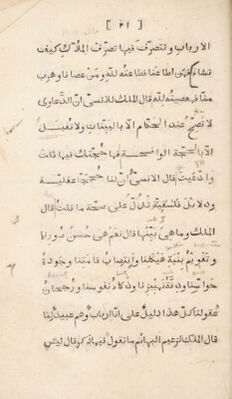 [ ٢١ ]
الارباب ونتصرّف فيها تصرّف الملّاك كيف
نشاء فمن اطاعنا فطاعته للّه ومن عصانا وهرب
منّا فمعصيته للّه قال الملك للانسيّ انّ الدعاوي
لا تصحّ عند الحكّام الّا بالبيّنات ولا تقبل
الّا بالحجة الواضحة فما حجّتك فيما قلت
وادّعيت قال الانسيّ انّ لنا حججًا عقليّة
ودلائل فلسفيّة تدلّ على صحّة ما قلت قال
الملك وما هي بيّنها قال نعم هي حسن صورتنا
وتقويم بنية هيكلنا وانتصاب قامتنا وجودة
حواسنا ودقّة تمييزنا وذكاء نفوسنا ورجحان
عقولنا كلّ هذا دليل على انّا ارباب وهم عبيد لنا
قال الملك لزعيم البهائم ما تقول فيما ذكر قال ليس